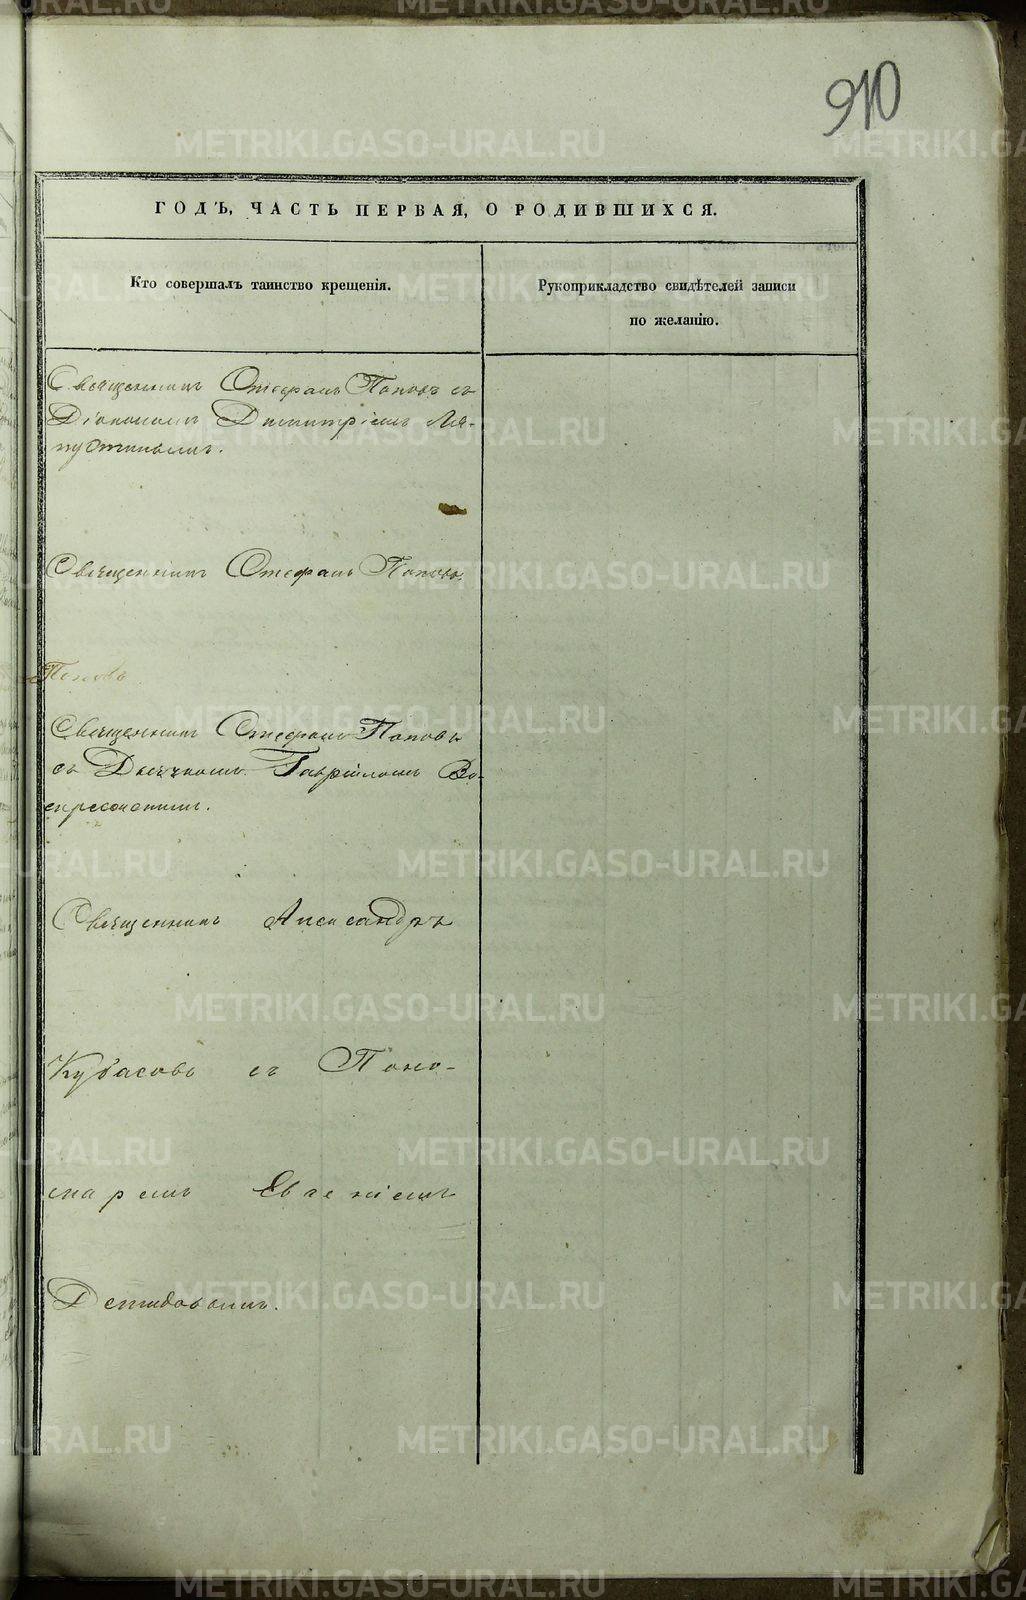 910
ГОДЪ, ЧАСТЬ ПЕРВАЯ, О РОДИВШИХСЯ.
Кто совершалъ таинство крещенія.
Рукоприкладство свидѣтелей записи
по желанію.
Священникъ Стефанъ Поповъ съ
Діакономъ Димитріемъ Ля-
пустинымъ.
Священникъ Стефанъ Поповъ.
Поповъ
Священникъ Стефанъ Поповъ
съ Дьячкомъ Гавріиломъ Во-
скресенскимъ.
Священникъ Александръ
Кубасовъ съ Поно-
маремъ Евгеніемъ
Демидовымъ.
METRIKI.GASO-URAL.RU